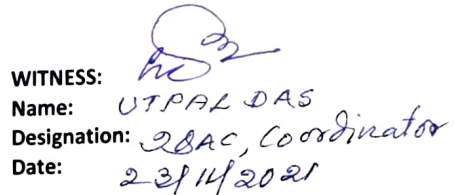 WITNESS:
Name: UTPAL DAS
Designation: IQAC, Coordinator
Date: 23/11/2021